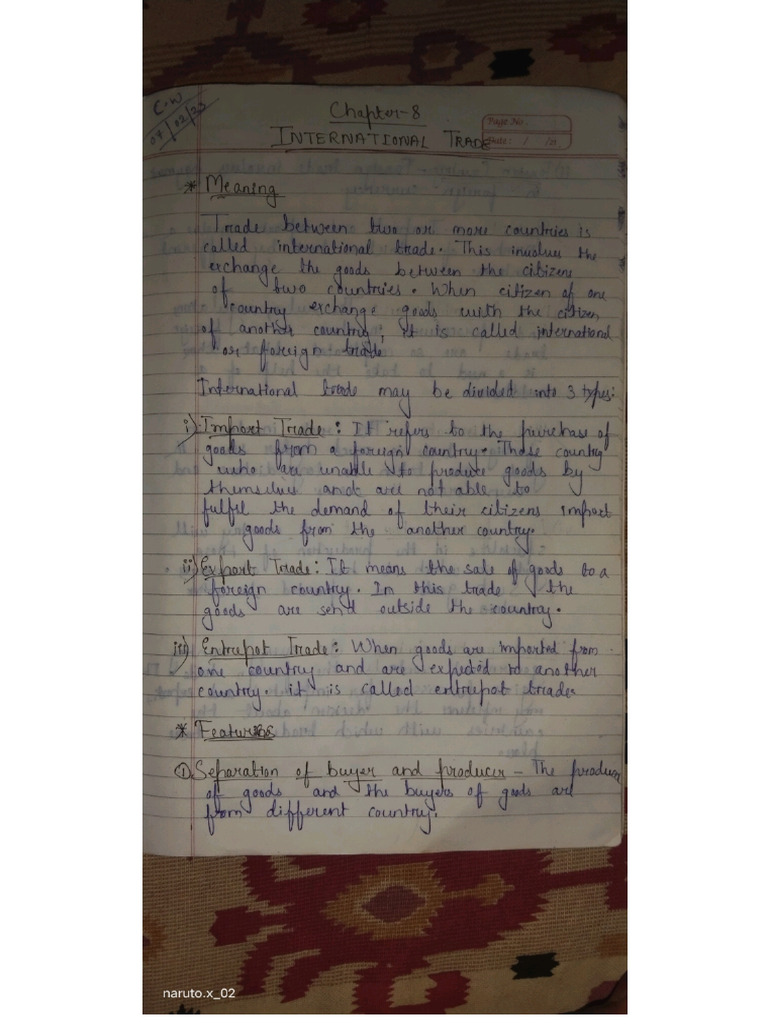 C.W
07/02/23
Chapter-8
Page No.
INTERNATIONAL TRADE
Date: / /20
* Meaning
Trade between two or more countries is
called international trade. This involves the
exchange the goods between the citizens
of two countries. When citizen of one
country exchange goods with the citizen
of another country, it is called international
or foreign trade
International trade may be divided into 3 types:
i) Import Trade: It refers to the purchase of
goods from a foreign country. Those country
who are unable to produce goods by
themselves and are not able to
fulfil the demand of their citizens import
goods from the another country.
ii) Export Trade: It means the sale of goods to a
foreign country. In this trade the
goods are send outside the country.
iii) Entrepot Trade: When goods are imported from
one country and are expoted to another
country. it is called entrepot trade.
* Features
① Separation of buyer and producer - The producer
of goods and the buyers of goods are
from different country.
naruto.x_02